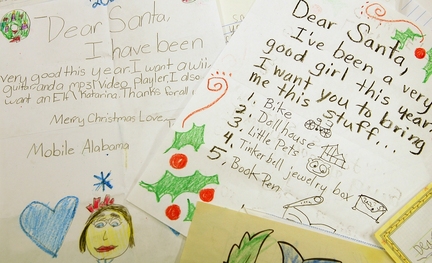 Dear Santa,
I have been
very good this year. I want a wii
guitar and a most Video player. I also
want an Elf, Katarina. Thanks for all
Merry Christmas Love,
Mobile Alabama
Dear Santa,
I've been a very
good girl this year
I want you to bring
me this stuff...
1. Bike
2. Doll house
3. Little Pets
4. Tinkerbell jewelry box
5. Book Pen